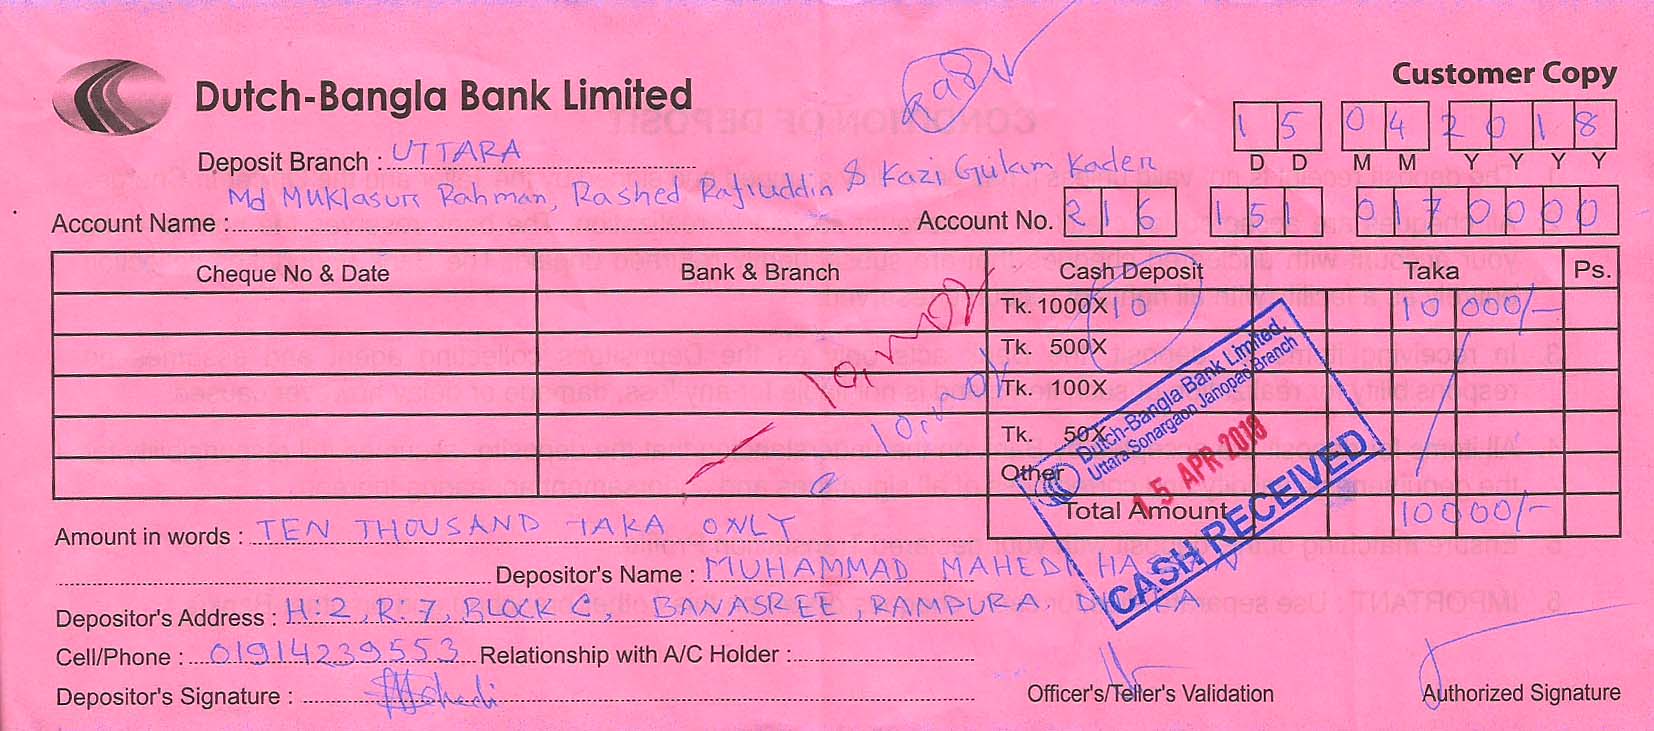 Dutch-Bangla Bank Limited
Customer Copy
15 04 2018
D D M M Y Y Y Y
Deposit Branch : UTTARA
Md Muklasur Rahman, Rashed Rafiuddin & Kazi Gulam Kader
Account Name :
Account No. 216 151 0170000
Cheque No & Date Bank & Branch Cash Deposit Taka Ps.
Tk. 1000X 10 10 000/-
Tk. 500X
Tk. 100X
Tk. 50X
Other
Total Amount 10000/-
Dutch-Bangla Bank Limited.
Uttara Sonargaon Janopad Branch
15 APR 2018
CASH RECEIVED
Amount in words : TEN THOUSAND TAKA ONLY
Depositor's Name : MUHAMMAD MAHEDI HASAN
Depositor's Address : H:2, R:7, BLOCK C, BANASREE, RAMPURA. DHAKA
Cell/Phone : 01914239553 Relationship with A/C Holder :
Depositor's Signature :
Officer's/Teller's Validation
Authorized Signature